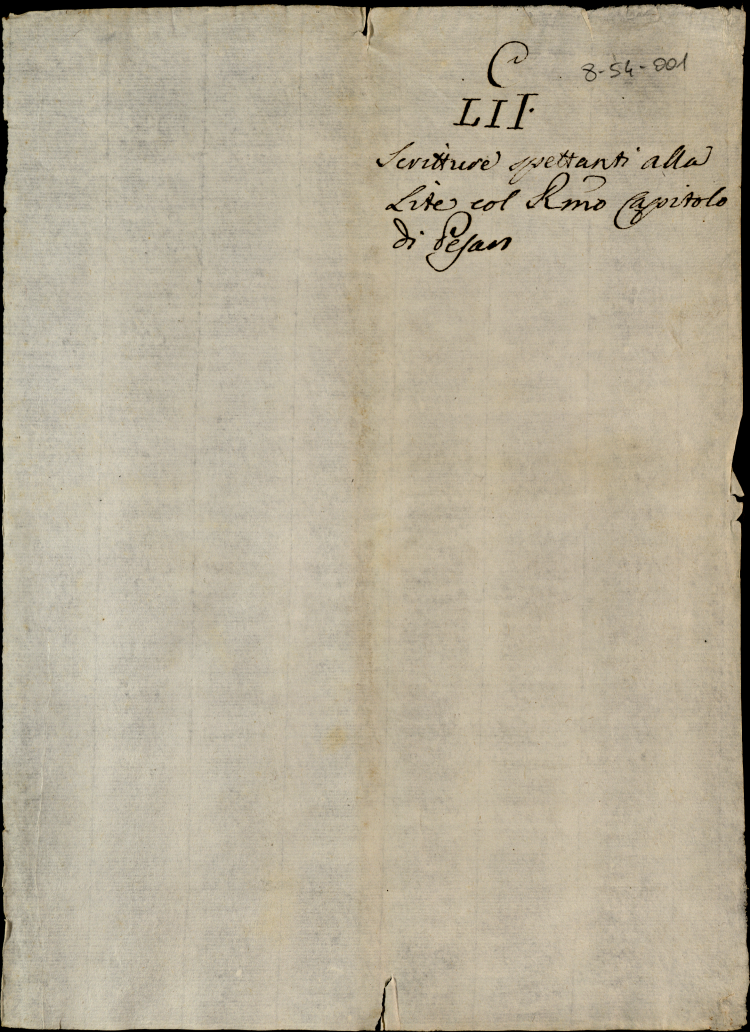 C
8-54-001
LII.
Scritture spettanti alla
Lite col Rmo Capitolo
di Pesaro